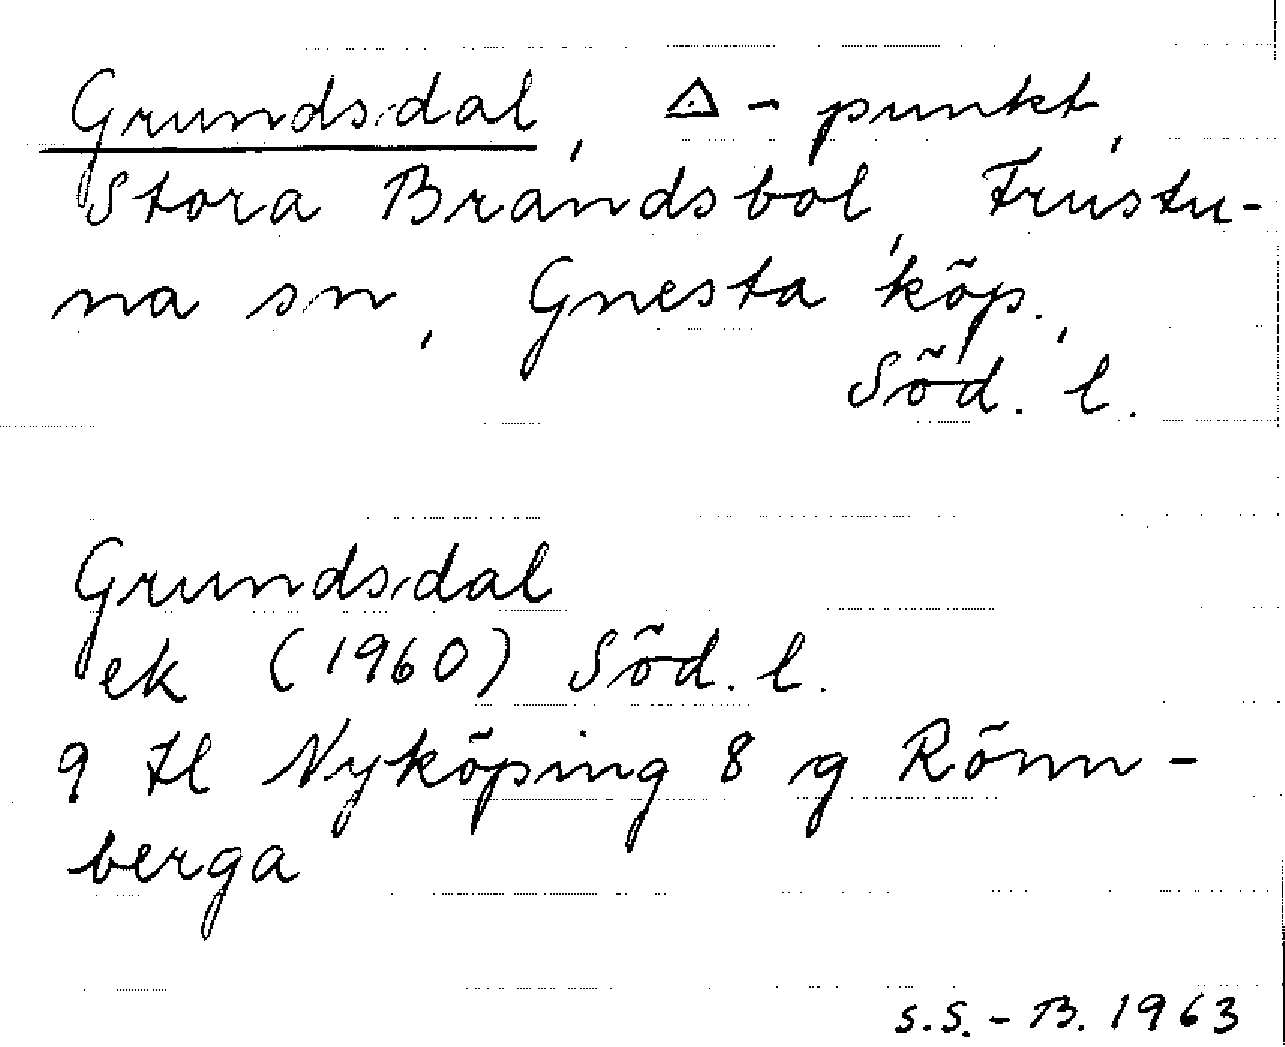 Grundsdal, △ - punkt,
Stora Brandsbol, Frustu-
na sn, Gnesta köp.,
Söd. l.
Grundsdal
ek (1960) Söd. l.
9 H Nyköping 8 g Rönn-
berga
S.S.-B. 1963